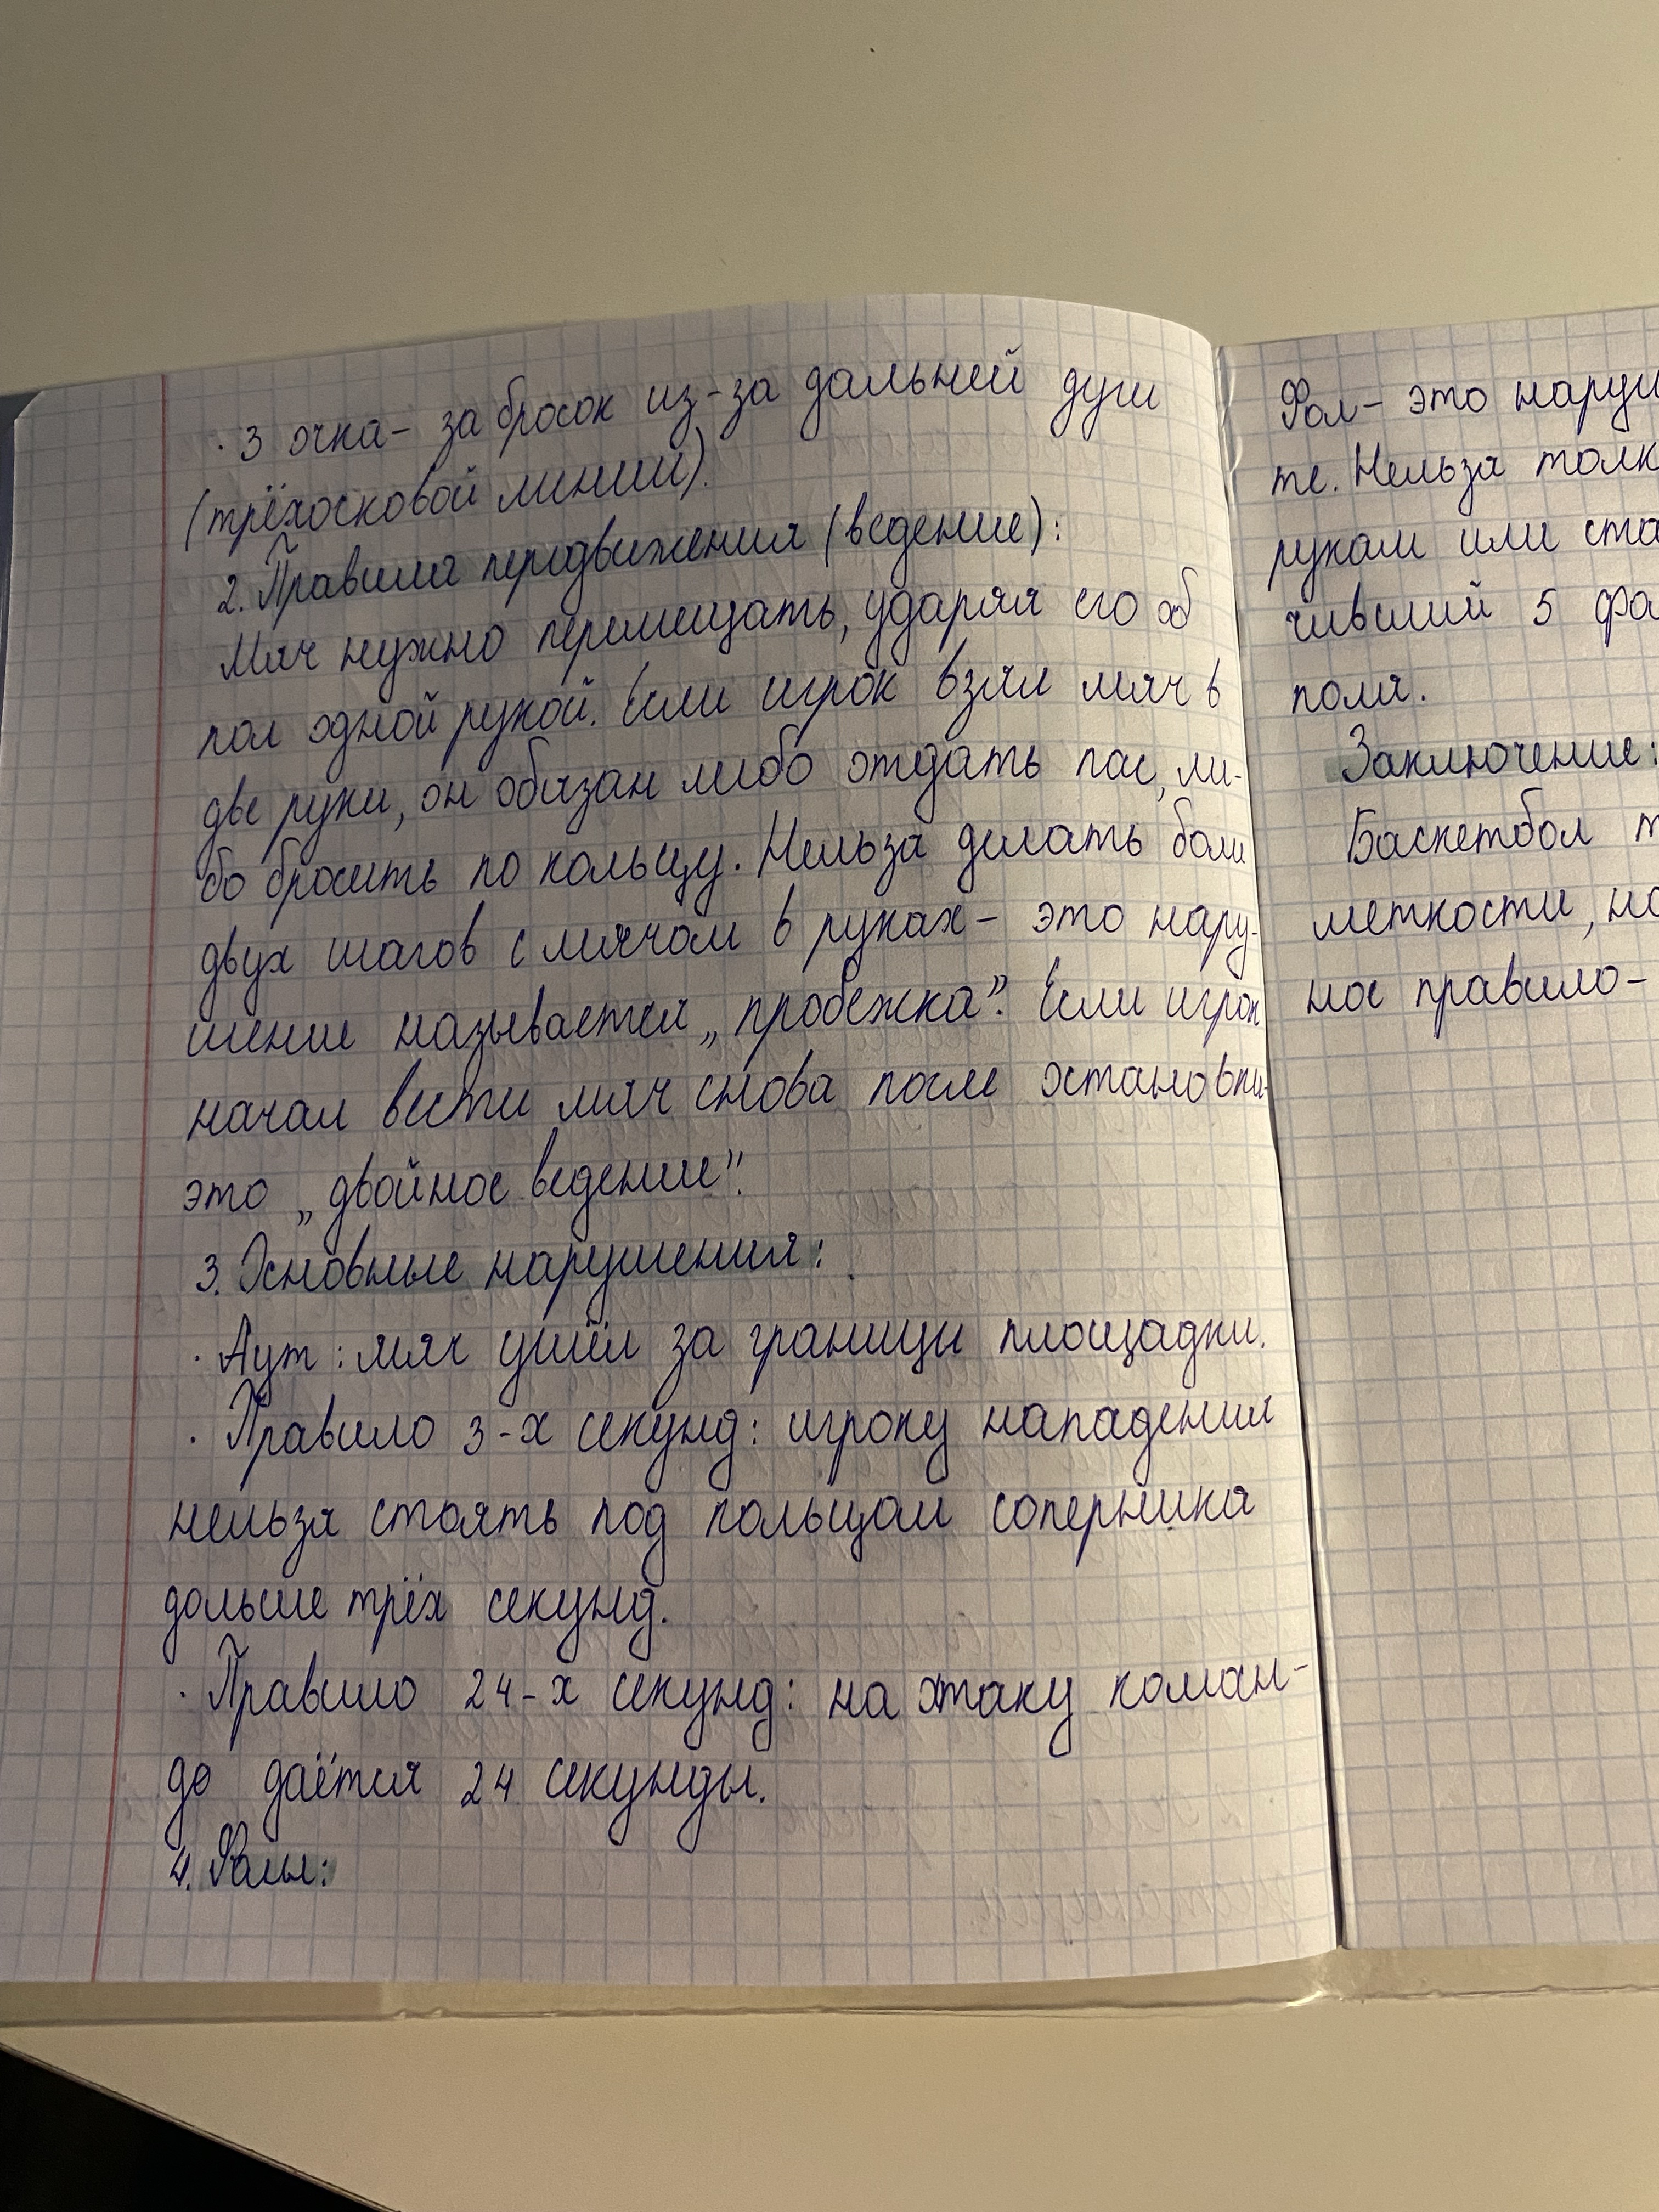 · 3 очка – за бросок из-за дальней дуги
(трёхосковой линии).
2. Правила передвижения (ведение):
Мяч нужно перемещать, ударяя его об
пол одной рукой. Если игрок взял мяч в
две руки, он обязан либо отдать пас, ли-
бо бросить по кольцу. Нельзя делать боли
двух шагов с мячом в руках – это нару-
шение называется „пробежка”. Если игрок
начал вести мяч снова после остановки-
это „двойное ведение”.
3. Основные нарушения:
· Аут: мяч ушёл за границы площадки.
· Правило 3-х секунд: игроку нападения
нельзя стоять под кольцом соперника
дольше трёх секунд.
· Правило 24-х секунд: на атаку коман-
де даётся 24 секунды.
4. Фолы:
Фол – это наруш
те. Нельзя толк
рукам или ста
чивший 5 фо
поля.
Заключение:
Баскетбол т
меткости, но
ное правило –